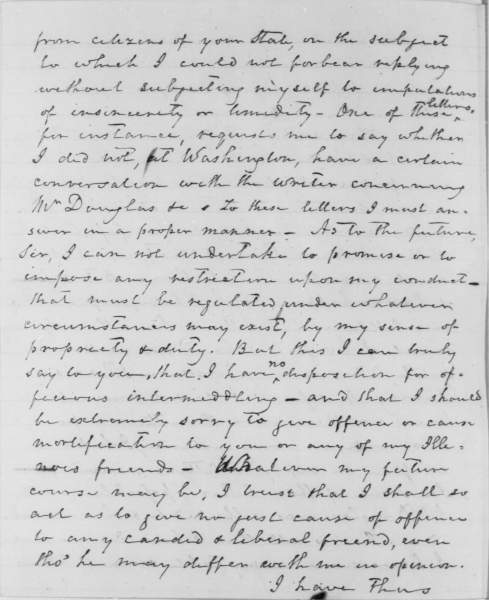 from citizens of your State, on the subject
to which I could not forbear replying
without subjecting myself to imputations
of insincerity or timidity - One of these letters,
for instance, requests me to say whether
I did not, at Washington, have a certain
conversation with the writer concerning
Mr Douglas &c & To these letters I must an-
swer in a proper manner - As to the future,
Sir, I can not undertake to promise or to
impose any restriction upon my conduct -
that must be regulated, under whatever
circumstances may exist, by my sense of
propriety & duty. But this I can truly
say to you, that I have no disposition for of-
ficious intermeddling - and that I should
be extremely sorry to give offence or cause
mortification to you or any of my Illi-
nois friends - Whatever my future
course may be, I trust that I shall so
act as to give no just cause of offence
to any candid & liberal friend, even
tho' he may differ with me in opinion.
I have thus